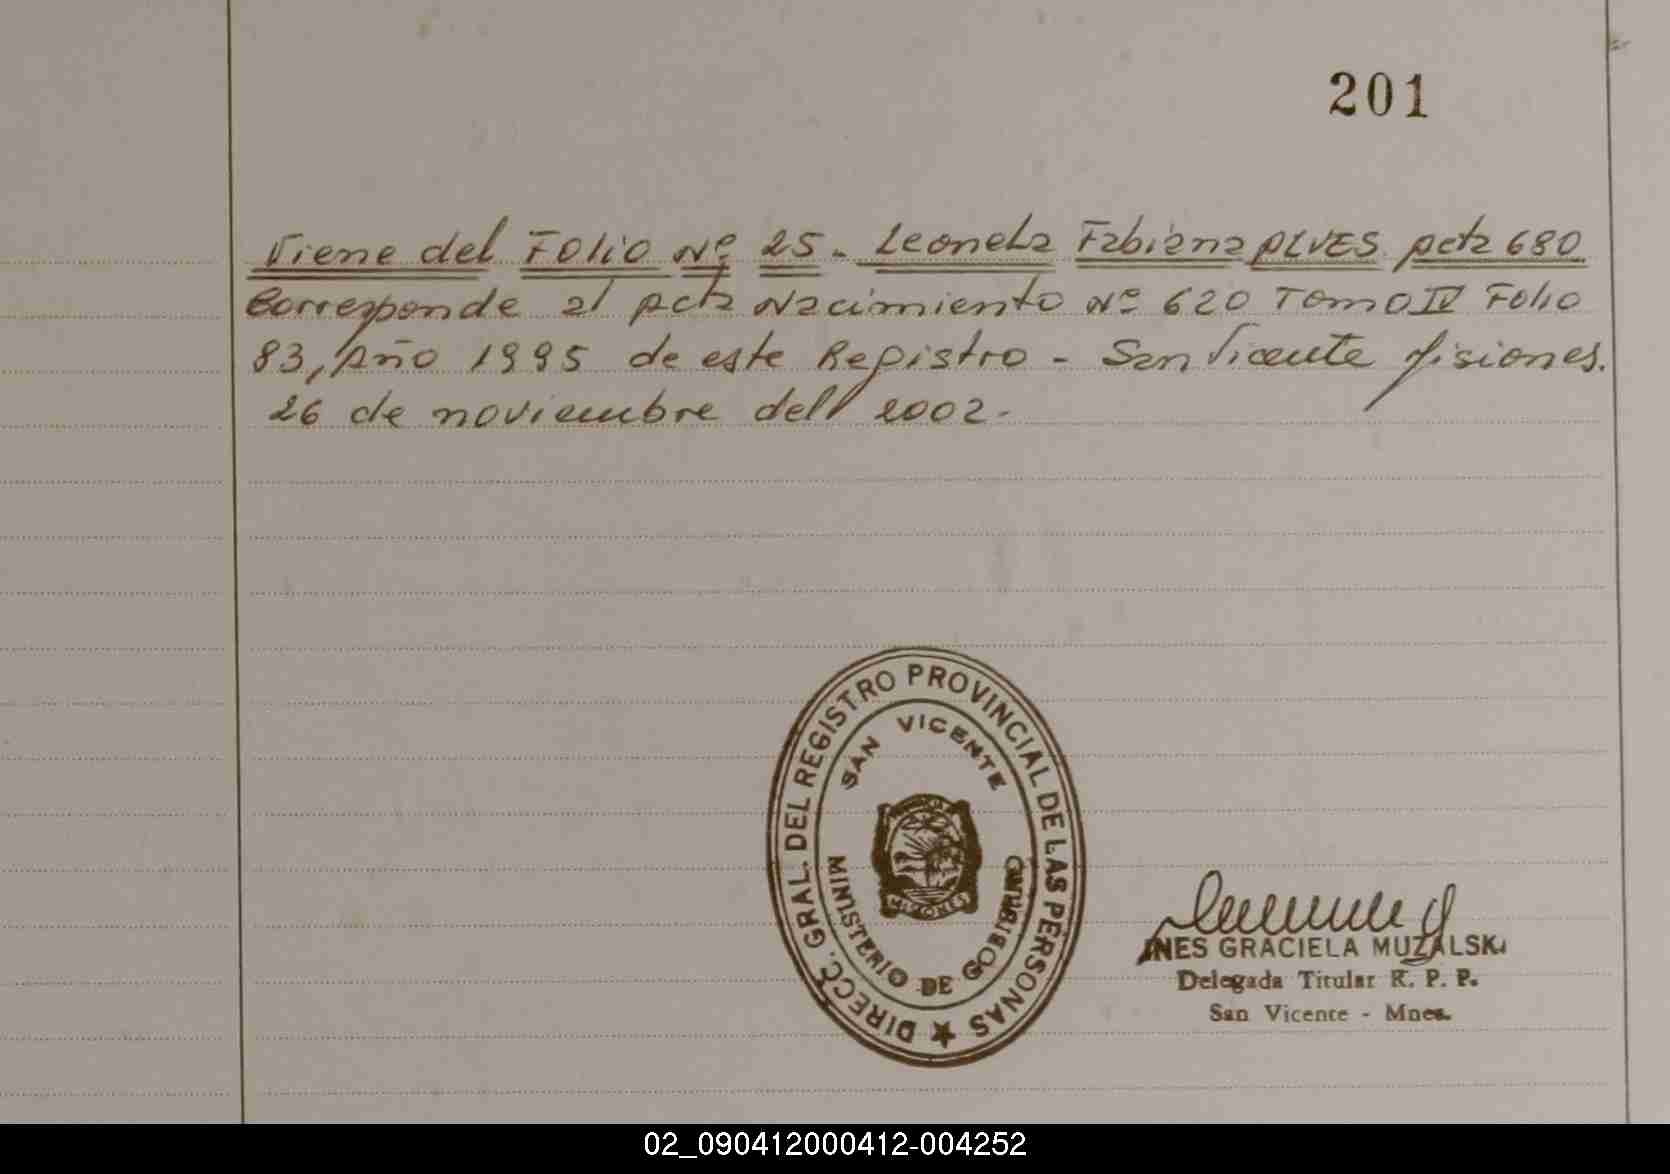 201
Viene del Folio Nº 25 - Leonela Fabiana ALVES Acta 680
Corresponde al Acta Nacimiento Nº 620 Tomo IV Folio
83, Año 1995 de este Registro - San Vicente Misiones.
26 de noviembre del 2002-
DIRECC. GRAL. DEL REGISTRO PROVINCIAL DE LAS PERSONAS ★
SAN VICENTE
MISIONES
MINISTERIO DE GOBIERNO
INES GRACIELA MUZALSKI
Delegada Titular R. P. P.
San Vicente - Mnes.
02_090412000412-004252